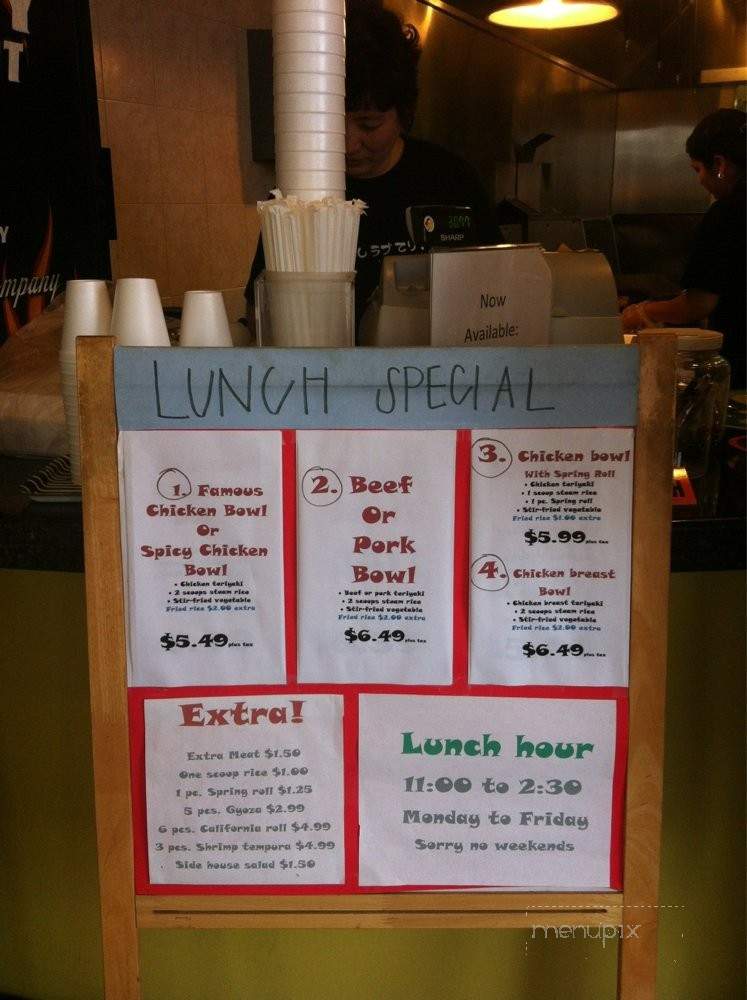 Y
T
Y
mpany
SHARP
Now
Available:
LUNCH SPECIAL
1. Famous
Chicken Bowl
Or
Spicy Chicken
Bowl
• Chicken teriyaki
• 2 scoops steam rice
• Stir-fried vegetable
Fried rice $2.00 extra
$5.49 plus tax
2. Beef
Or
Pork
Bowl
• Beef or pork teriyaki
• 2 scoops steam rice
• Stir-fried vegetable
Fried rice $2.00 extra
$6.49 plus tax
3. Chicken bowl
With Spring Roll
• Chicken teriyaki
• 1 scoop steam rice
• 1 pc. Spring roll
• Stir-fried vegetable
Fried rice $1.00 extra
$5.99 plus tax
4. Chicken breast
Bowl
• Chicken breast teriyaki
• 2 scoops steam rice
• Stir-fried vegetable
Fried rice $2.00 extra
$6.49 plus tax
Extra!
Extra Meat $1.50
One scoop rice $1.00
1 pc. Spring roll $1.25
5 pcs. Gyoza $2.99
6 pcs. California roll $4.99
3 pcs. Shrimp tempura $4.99
Side house salad $1.50
Lunch hour
11:00 to 2:30
Monday to Friday
Sorry no weekends
menupix